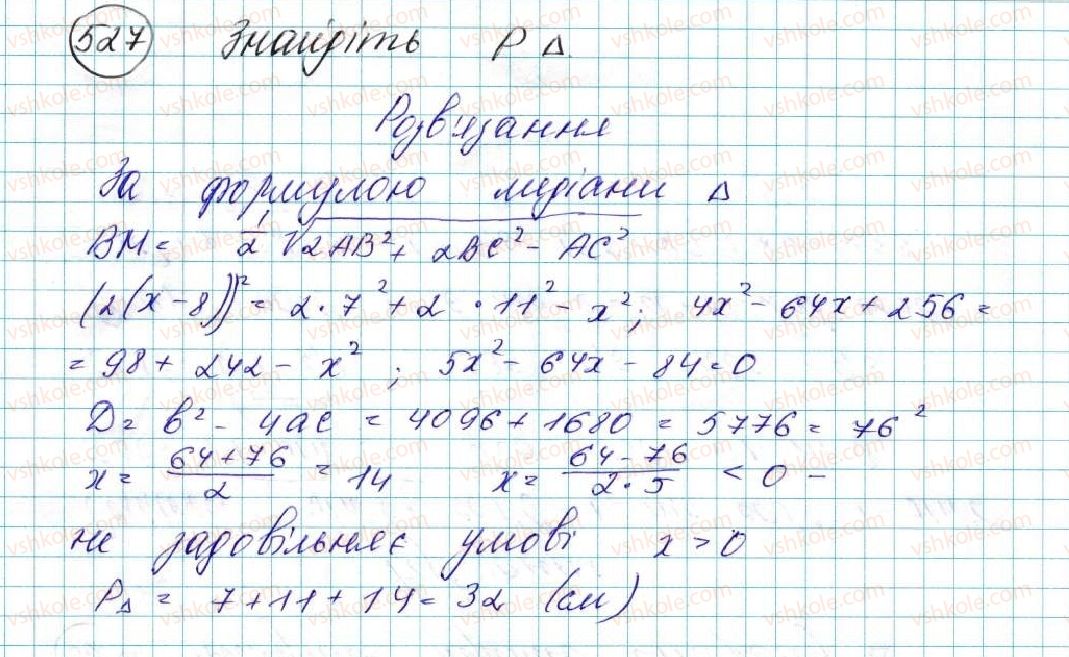 527 Знайдіть P Δ.
Розв'язання
За формулою медіани Δ
BM = 1/2 √2AB² + 2BC² - AC²
(2(x-8))² = 2·7² + 2·11² - x²; 4x² - 64x + 256 =
= 98 + 242 - x²; 5x² - 64x - 84 = 0
D = b² - 4ac = 4096 + 1680 = 5776 = 76²
x = (64+76)/2 = 14 x = (64-76)/(2·5) < 0 -
не задовільняє умові x > 0
PΔ = 7 + 11 + 14 = 32 (см)
vshkole.com